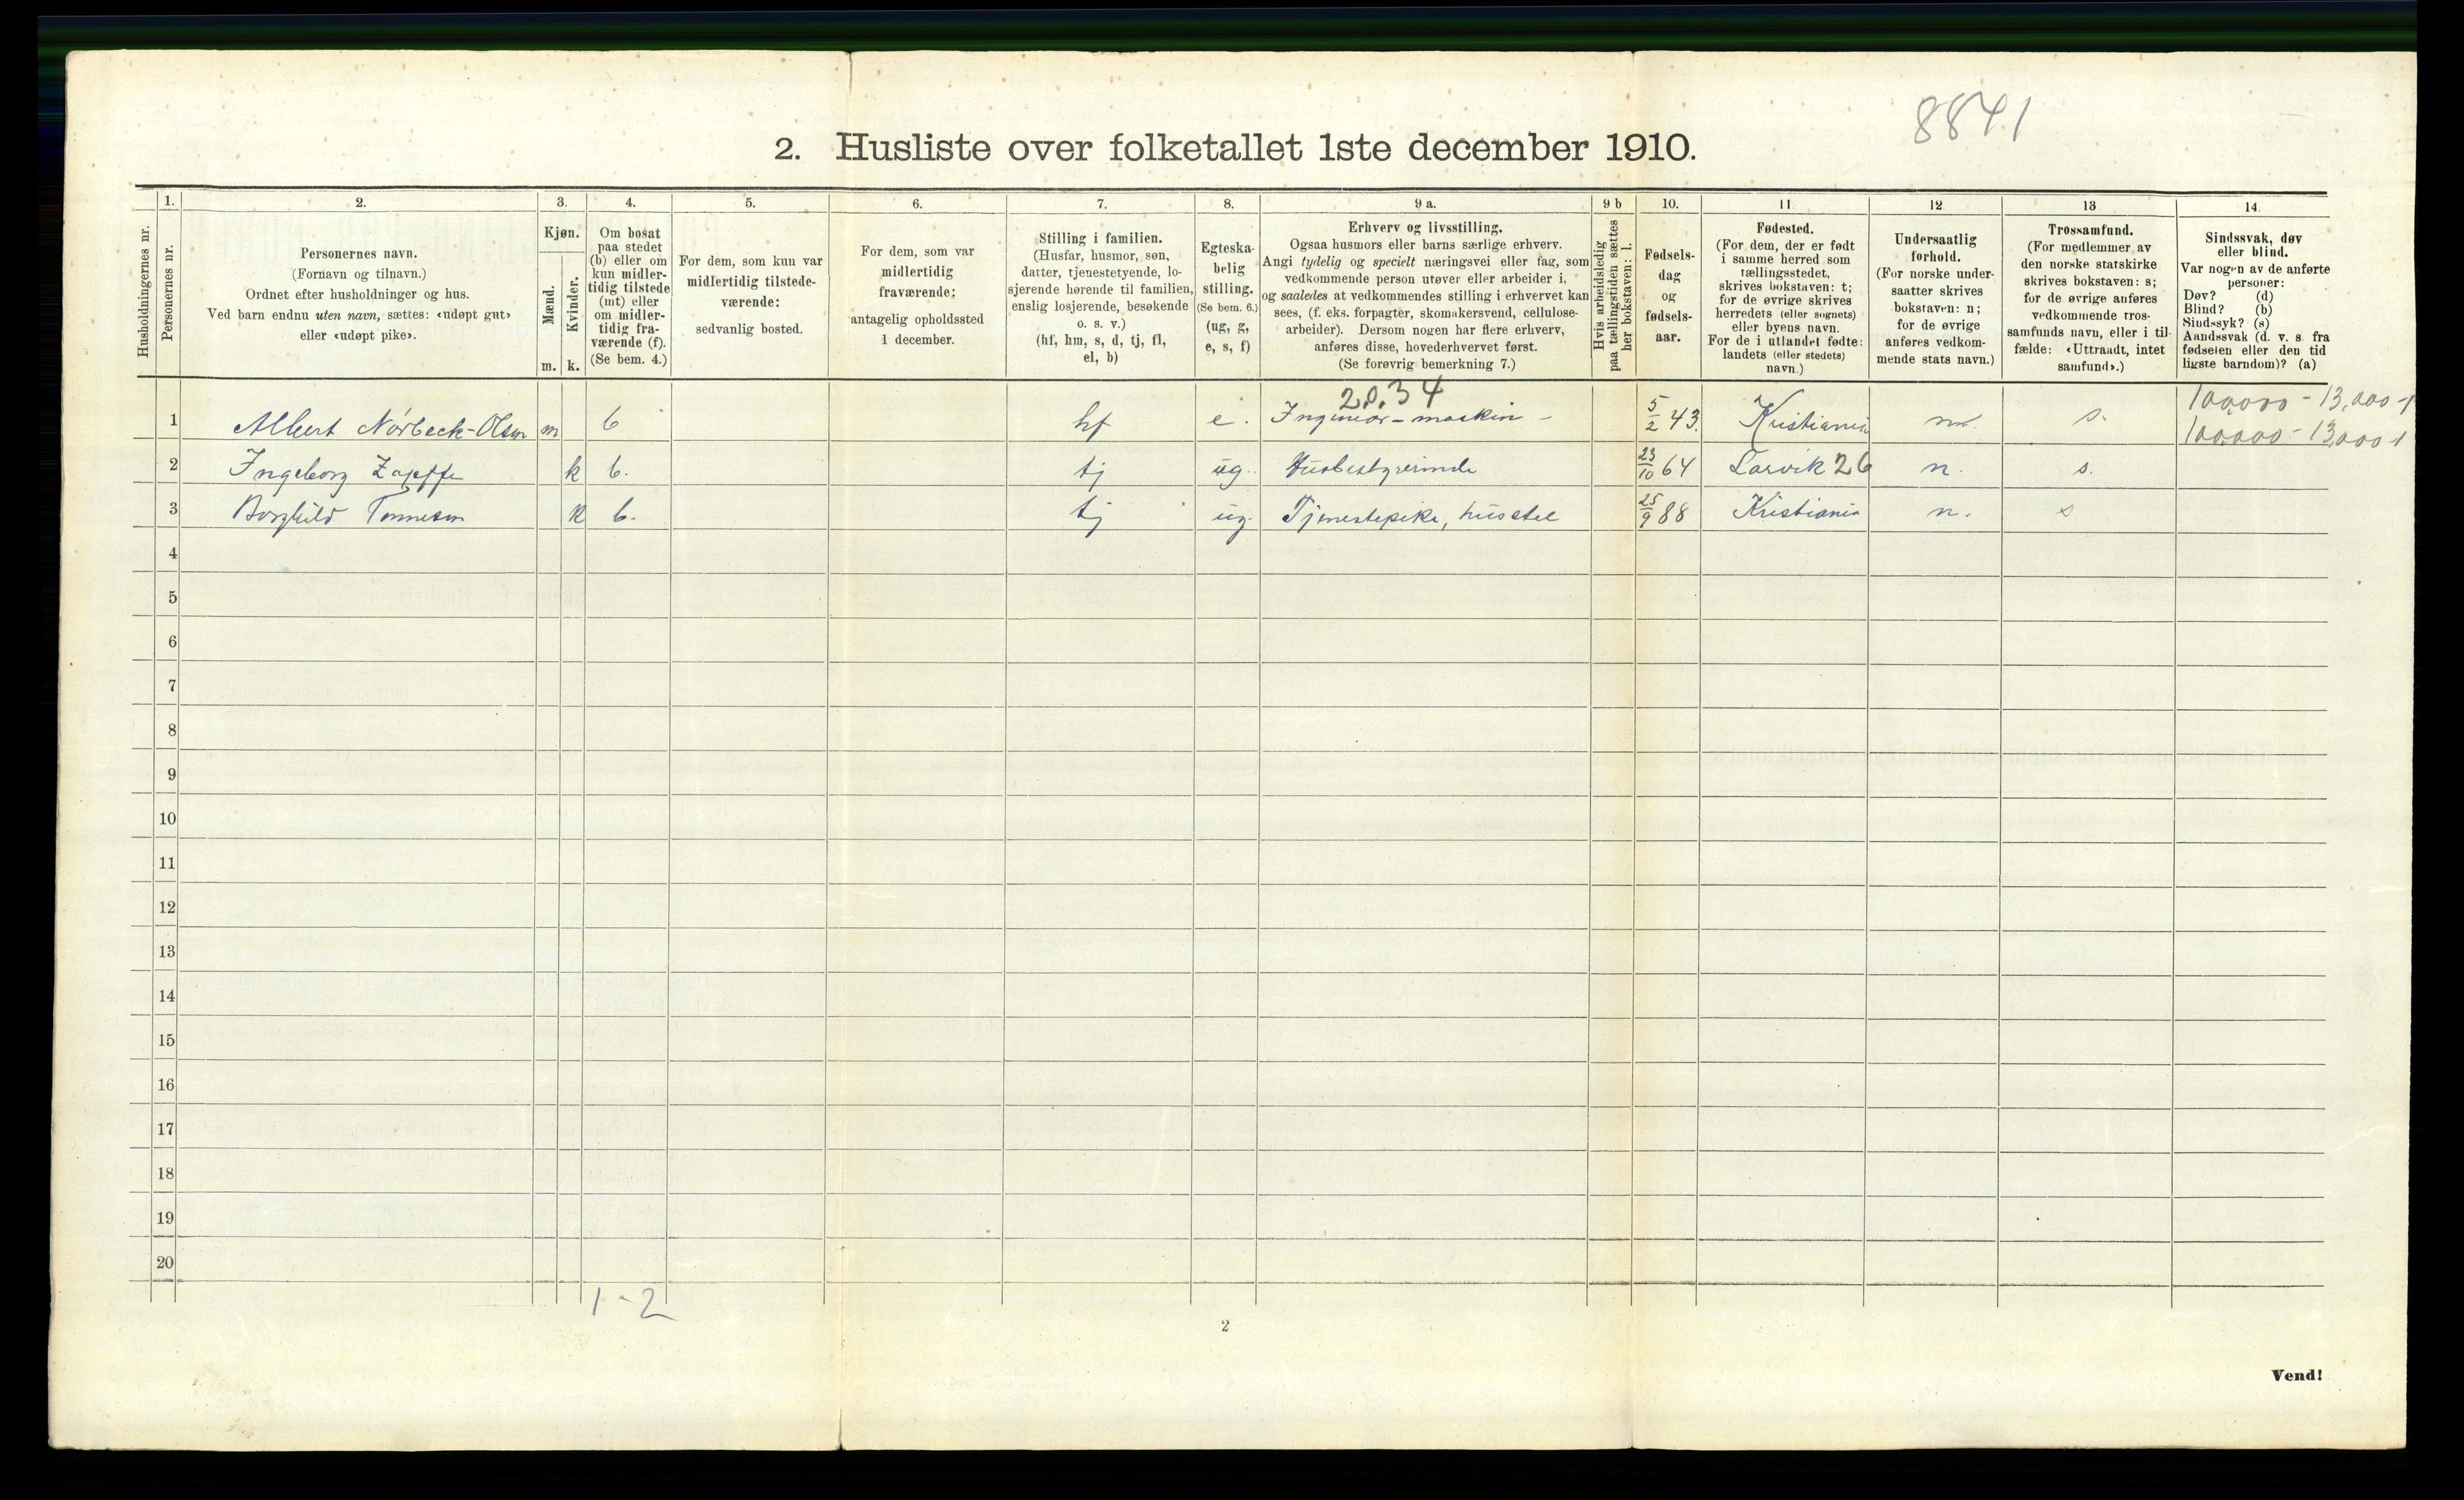 8841
2. Husliste over folketallet 1ste december 1910.
Husholdningernes nr.
1.
Personernes nr.
2.
Personernes navn.
(Fornavn og tilnavn.)
Ordnet efter husholdninger og hus.
Ved barn endnu uten navn, sættes: «udøpt gut»
eller «udøpt pike».
3.
Kjøn.
Mænd.
Kvinder.
m. k.
4.
Om bosat
paa stedet
(b) eller om
kun midler-
tidig tilstede
(mt) eller
om midler-
tidig fra-
værende (f).
(Se bem. 4.)
5.
For dem, som kun var
midlertidig tilstede-
værende:
sedvanlig bosted.
6.
For dem, som var
midlertidig
fraværende:
antagelig opholdssted
1 december.
7.
Stilling i familien.
(Husfar, husmor, søn,
datter, tjenestetyende, lo-
sjerende hørende til familien,
enslig losjerende, besøkende
o. s. v.)
(hf, hm, s, d, tj, fl,
el, b)
8.
Egteska-
belig
stilling.
(Se bem. 6.)
(ug, g,
e, s, f)
9 a.
Erhverv og livsstilling.
Ogsaa husmors eller barns særlige erhverv.
Angi tydelig og specielt næringsvei eller fag, som
vedkommende person utøver eller arbeider i,
og saaledes at vedkommendes stilling i erhvervet kan
sees, (f. eks. forpagter, skomakersvend, cellulose-
arbeider). Dersom nogen har flere erhverv,
anføres disse, hovederhvervet først.
(Se forøvrig bemerkning 7.)
9 b
Hvis arbeidsledig
paa tællingstiden sættes
her bokstaven: l.
10.
Fødsels-
dag
og
fødsels-
aar.
11
Fødested.
(For dem, der er født
i samme herred som
tællingsstedet,
skrives bokstaven: t;
for de øvrige skrives
herredets (eller sognets)
eller byens navn.
For de i utlandet fødte:
landets (eller stedets)
navn.)
12
Undersaatlig
forhold.
(For norske under-
saatter skrives
bokstaven: n;
for de øvrige
anføres vedkom-
mende stats navn.)
13
Trossamfund.
(For medlemmer av
den norske statskirke
skrives bokstaven: s;
for de øvrige anføres
vedkommende tros-
samfunds navn, eller i til-
fælde: «Uttraadt, intet
samfund».)
14.
Sindssvak, døv
eller blind.
Var nogen av de anførte
personer:
Døv? (d)
Blind? (b)
Sindssyk? (s)
Aandssvak (d. v. s. fra
fødselen eller den tid
ligste barndom)? (a)
20.34
100,000 - 13,000 - 1
1 Albert Nörbeck-Olsen m b hf e. Ingeniør-maskin- 5/2 43. Kristiania n. s. 100,000 - 13,000 1
2 Ingeborg Zapffe k b. tj ug. Husbestyrerinde 23/10 64 Larvik 26 n. s.
3 Borghild Tønnesen k b. tj ug. Tjenestepike, husstel 25/9 88 Kristiania n. s
4
5
6
7
8
9
10
11
12
13
14
15
16
17
18
19
20
1-2
2
Vend!